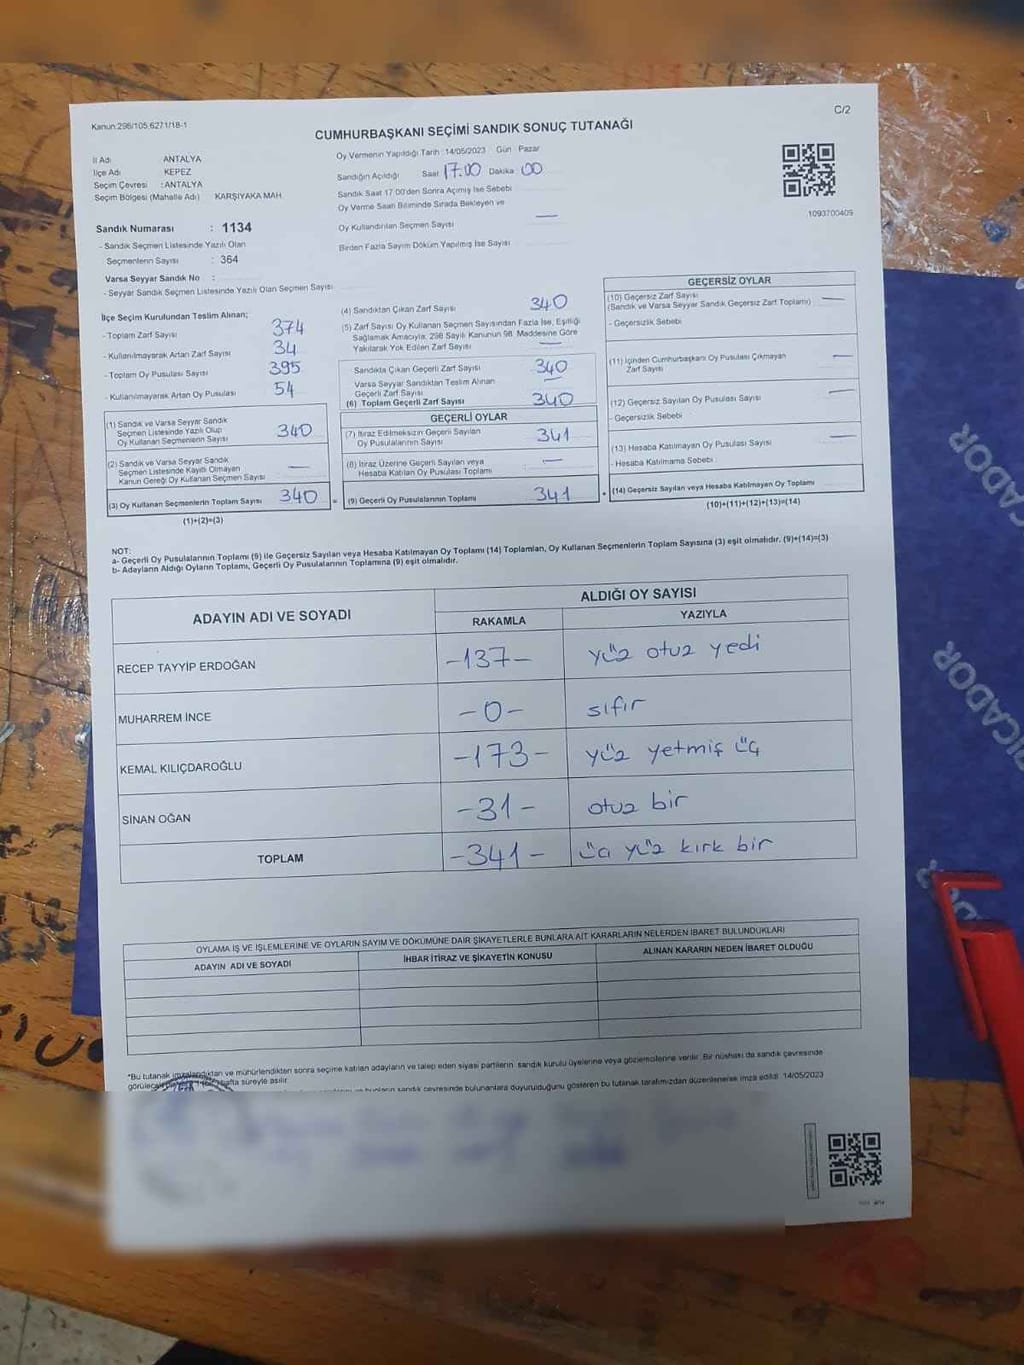 Kanun:298/105,6271/18-1
C/2
CUMHURBAŞKANI SEÇİMİ SANDIK SONUÇ TUTANAĞI
İl Adı ANTALYA
İlçe Adı KEPEZ
Seçim Çevresi : ANTALYA
Seçim Bölgesi (Mahalle Adı) KARŞIYAKA MAH
Sandık Numarası : 1134
- Sandık Seçmen Listesinde Yazılı Olan
Seçmenlerin Sayısı : 364
Varsa Seyyar Sandık No :
- Seyyar Sandık Seçmen Listesinde Yazılı Olan Seçmen Sayısı
Oy Vermenin Yapıldığı Tarih :14/05/2023 Gün : Pazar
Sandığın Açıldığı Saat 17.00 Dakika 00
Sandık Saat 17.00'den Sonra Açılmış İse Sebebi
Oy Verme Saati Bitiminde Sırada Bekleyen ve
Oy Kullandırılan Seçmen Sayısı —
Birden Fazla Sayım Döküm Yapılmış İse Sayısı
1093700409
İlçe Seçim Kurulundan Teslim Alınan;
- Toplam Zarf Sayısı 374
- Kullanılmayarak Artan Zarf Sayısı 34
- Toplam Oy Pusulası Sayısı 395
- Kullanılmayarak Artan Oy Pusulası 54
(1) Sandık ve Varsa Seyyar Sandık
Seçmen Listesinde Yazılı Olup
Oy Kullanan Seçmenlerin Sayısı 340
(2) Sandık ve Varsa Seyyar Sandık
Seçmen Listesinde Kayıtlı Olmayan
Kanun Gereği Oy Kullanan Seçmen Sayısı —
(3) Oy Kullanan Seçmenlerin Toplam Sayısı 340
(1)+(2)=(3)
(4) Sandıktan Çıkan Zarf Sayısı 340
(5) Zarf Sayısı Oy Kullanan Seçmen Sayısından Fazla İse, Eşitliği
Sağlamak Amacıyla, 298 Sayılı Kanunun 98. Maddesine Göre
Yakılarak Yok Edilen Zarf Sayısı —
Sandıkta Çıkan Geçerli Zarf Sayısı 340
Varsa Seyyar Sandıktan Teslim Alınan
Geçerli Zarf Sayısı —
(6) Toplam Geçerli Zarf Sayısı 340
GEÇERLİ OYLAR
(7) İtiraz Edilmeksizin Geçerli Sayılan
Oy Pusulalarının Sayısı 341
(8) İtiraz Üzerine Geçerli Sayılan veya
Hesaba Katılan Oy Pusulası Toplamı —
= (9) Geçerli Oy Pusulalarının Toplamı 341
GEÇERSİZ OYLAR
(10) Geçersiz Zarf Sayısı —
(Sandık ve Varsa Seyyar Sandık Geçersiz Zarf Toplamı)
- Geçersizlik Sebebi
(11) İçinden Cumhurbaşkanı Oy Pusulası Çıkmayan —
Zarf Sayısı
(12) Geçersiz Sayılan Oy Pusulası Sayısı —
- Geçersizlik Sebebi
(13) Hesaba Katılmayan Oy Pusulası Sayısı —
- Hesaba Katılmama Sebebi
+ (14) Geçersiz Sayılan veya Hesaba Katılmayan Oy Toplamı
(10)+(11)+(12)+(13)=(14)
NOT:
a- Geçerli Oy Pusulalarının Toplamı (9) ile Geçersiz Sayılan veya Hesaba Katılmayan Oy Toplamı (14) Toplamları, Oy Kullanan Seçmenlerin Toplam Sayısına (3) eşit olmalıdır. (9)+(14)=(3)
b- Adayların Aldığı Oyların Toplamı, Geçerli Oy Pusulalarının Toplamına (9) eşit olmalıdır.
ADAYIN ADI VE SOYADI
ALDIĞI OY SAYISI
RAKAMLA YAZIYLA
RECEP TAYYİP ERDOĞAN -137- yüz otuz yedi
MUHARREM İNCE -0- sıfır
KEMAL KILIÇDAROĞLU -173- yüz yetmiş üç
SİNAN OĞAN -31- otuz bir
TOPLAM -341- üç yüz kırk bir
OYLAMA İŞ VE İŞLEMLERİNE VE OYLARIN SAYIM VE DÖKÜMÜNE DAİR ŞİKAYETLERLE BUNLARA AİT KARARLARIN NELERDEN İBARET BULUNDUKLARI
ADAYIN ADI VE SOYADI İHBAR İTİRAZ VE ŞİKAYETİN KONUSU ALINAN KARARIN NEDEN İBARET OLDUĞU
*Bu tutanak imzalandıktan ve mühürlendikten sonra seçime katılan adayların ve talep eden siyasi partilerin sandık kurulu üyelerine veya gözlemcilerine verilir. Bir nüshası da sandık çevresinde
hafta süreyle asılır.
sandık çevresinde bulunanlara duyurulduğunu gösteren bu tutanak tarafımızdan düzenlenerek imza edildi. 14/05/2023
CADOR
ICADOR